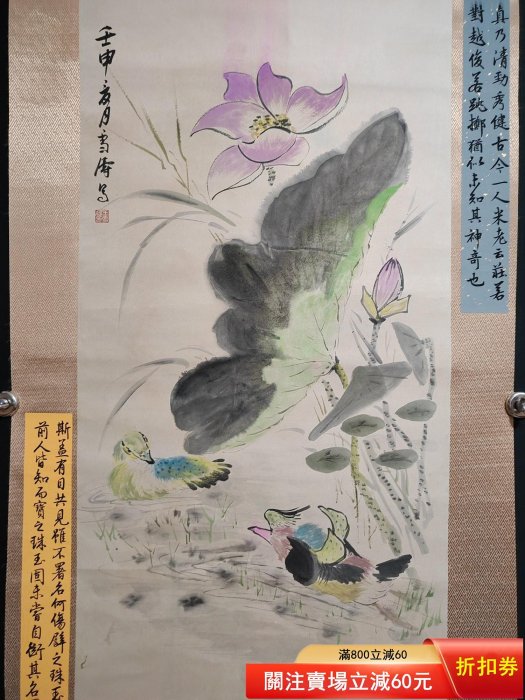 真乃清勁秀健古今一人米老云莊若
對越俊若跳擲猶似未知其神奇也
壬申夏月雪濤寫
斯蓋有目共見雖不署名何傷壁之珠玉
前人皆知而寶之珠玉固未嘗自衒其名
滿800立減60
關注賣場立減60元
折扣券